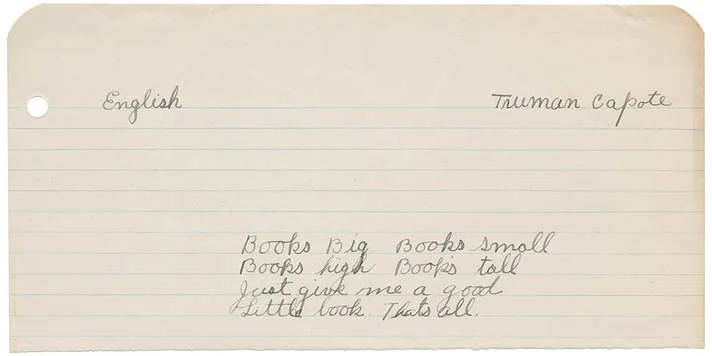 English Truman Capote
Books Big Books small
Books high Books tall
Just give me a good
Little book. Thats all.